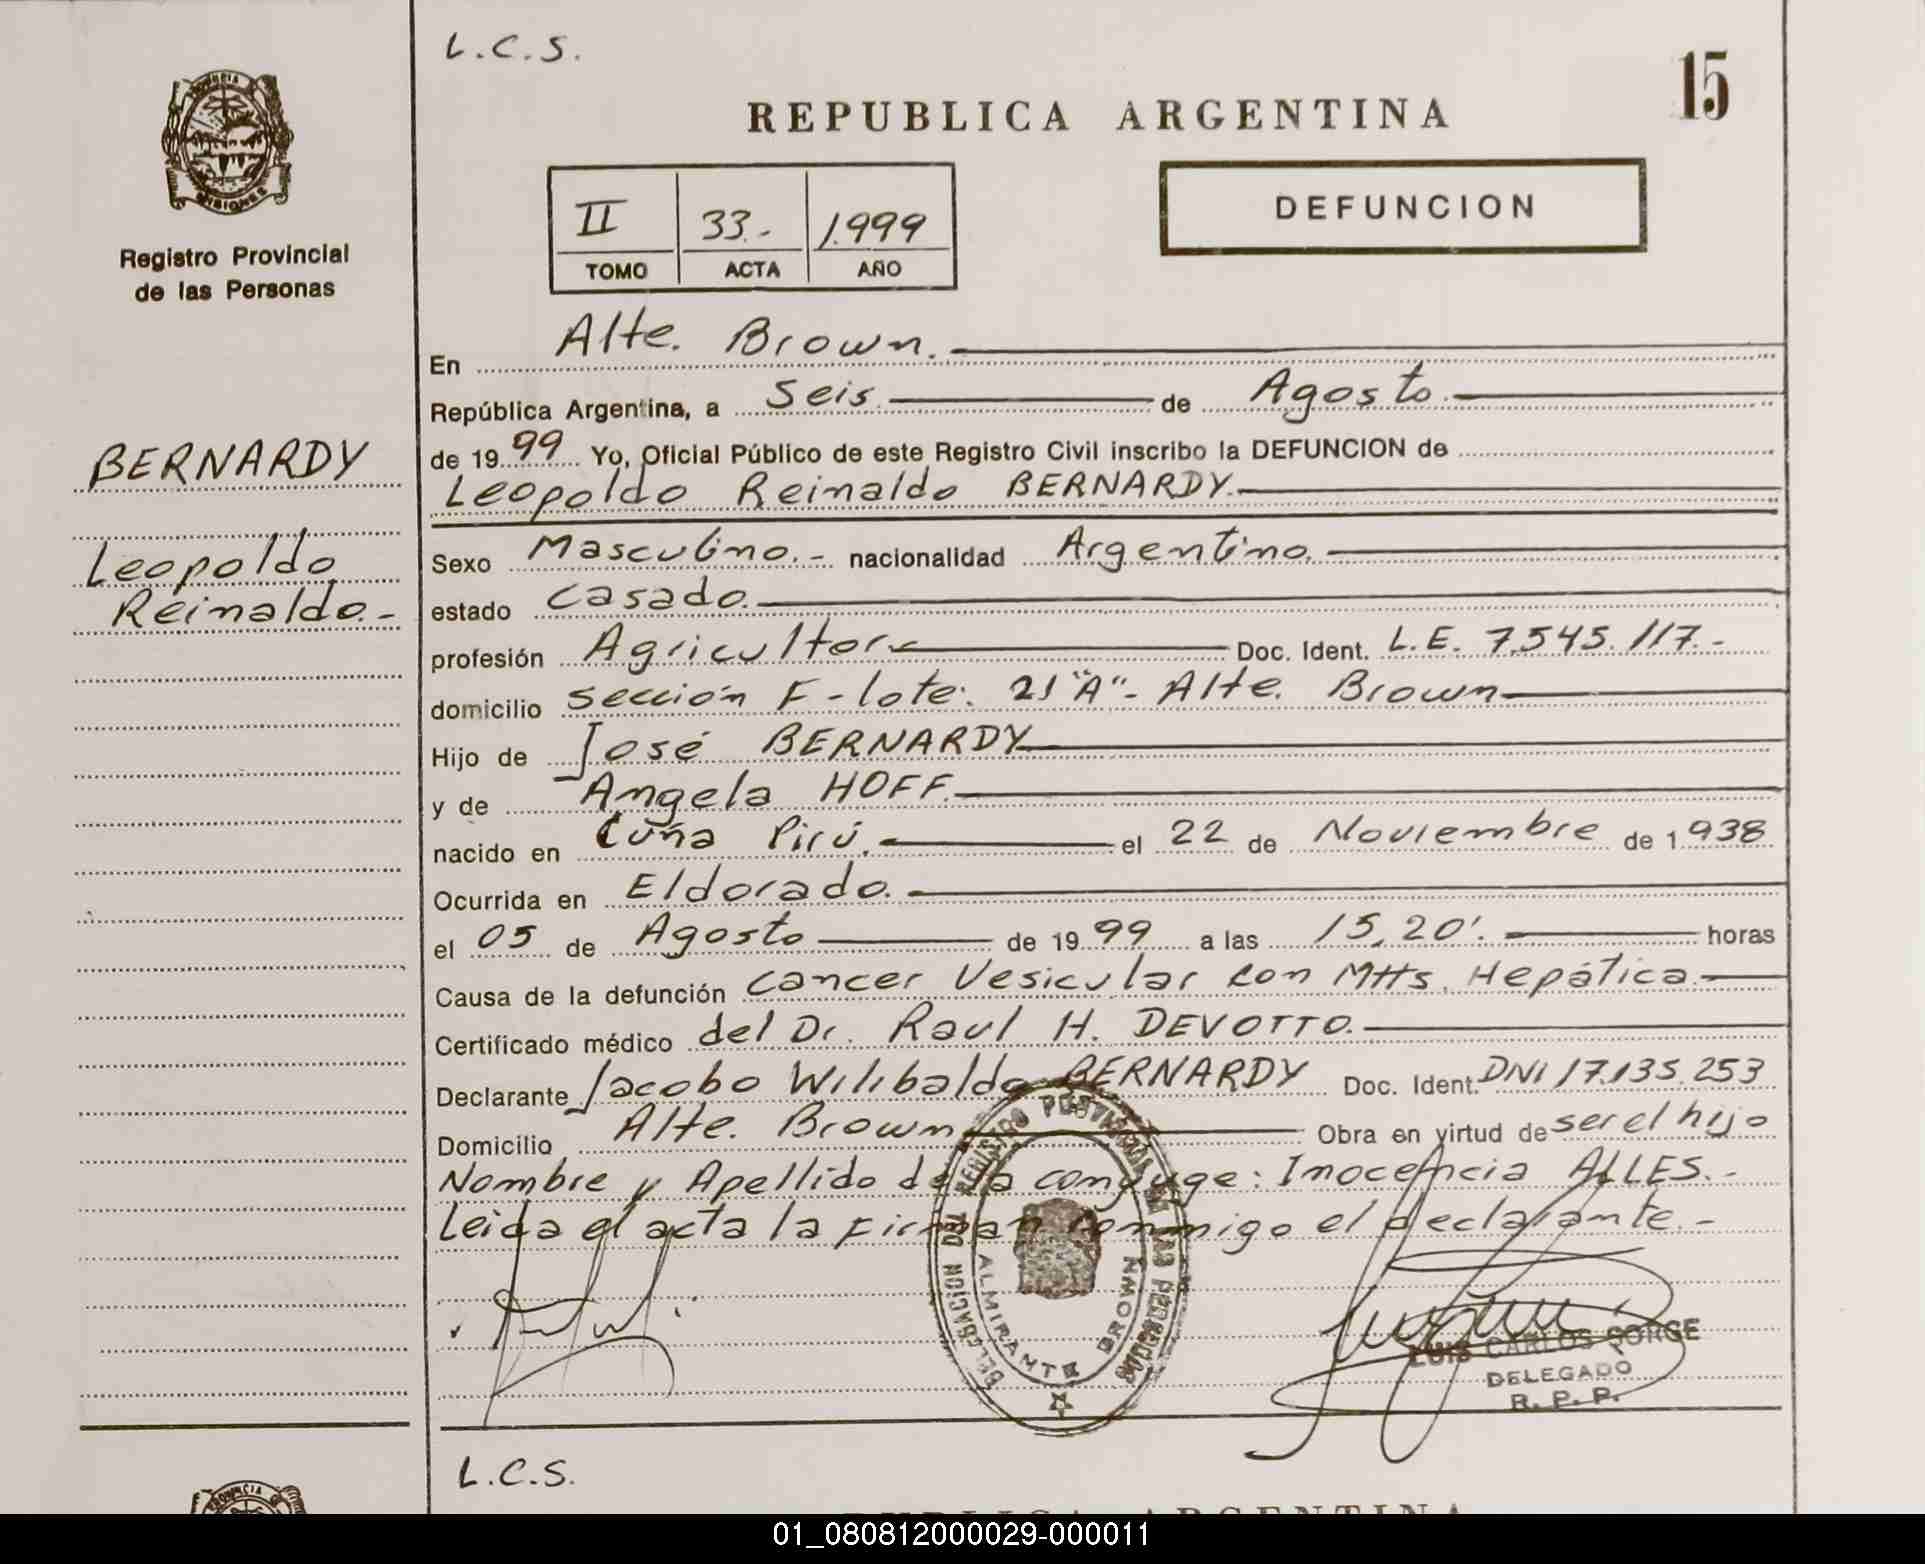 L.C.S.
15
REPUBLICA ARGENTINA
PROVINCIA
MISIONES
Registro Provincial
de las Personas
II 33.- 1.999
TOMO ACTA AÑO
DEFUNCION
En Alte. Brown.
República Argentina, a Seis de Agosto
de 19 99 Yo, Oficial Público de este Registro Civil inscribo la DEFUNCION de
Leopoldo Reinaldo BERNARDY.
BERNARDY
Leopoldo
Reinaldo.-
Sexo Masculino.- nacionalidad Argentino.
estado Casado.
profesión Agricultor Doc. Ident. L.E. 7.545.117.-
domicilio Sección F - lote: 21 "A"- Alte. Brown
Hijo de José BERNARDY
y de Angela HOFF.
nacido en Cuña Pirú. el 22 de Noviembre de 1 938
Ocurrida en Eldorado.
el 05 de Agosto de 19 99 a las 15,20'. horas
Causa de la defunción Cancer Vesicular con Mtts. Hepática.
Certificado médico del Dr. Raul H. DEVOTTO.
Declarante Jacobo Wilibaldo BERNARDY Doc. Ident. DNI 17.135.253
Domicilio Alte. Brown Obra en virtud de ser el hijo
Nombre y Apellido de la conyuge: Inocencia ALLES.-
Leida el acta la Firman conmigo el declarante.-
DELEGACION DEL REGISTRO PROVINCIAL DE LAS PERSONAS
ALMIRANTE BROWN
LUIS CARLOS SORGE
DELEGADO
R. P. P.
L.C.S.
PROVINCIA
REPUBLICA ARGENTINA
01_080812000029-000011